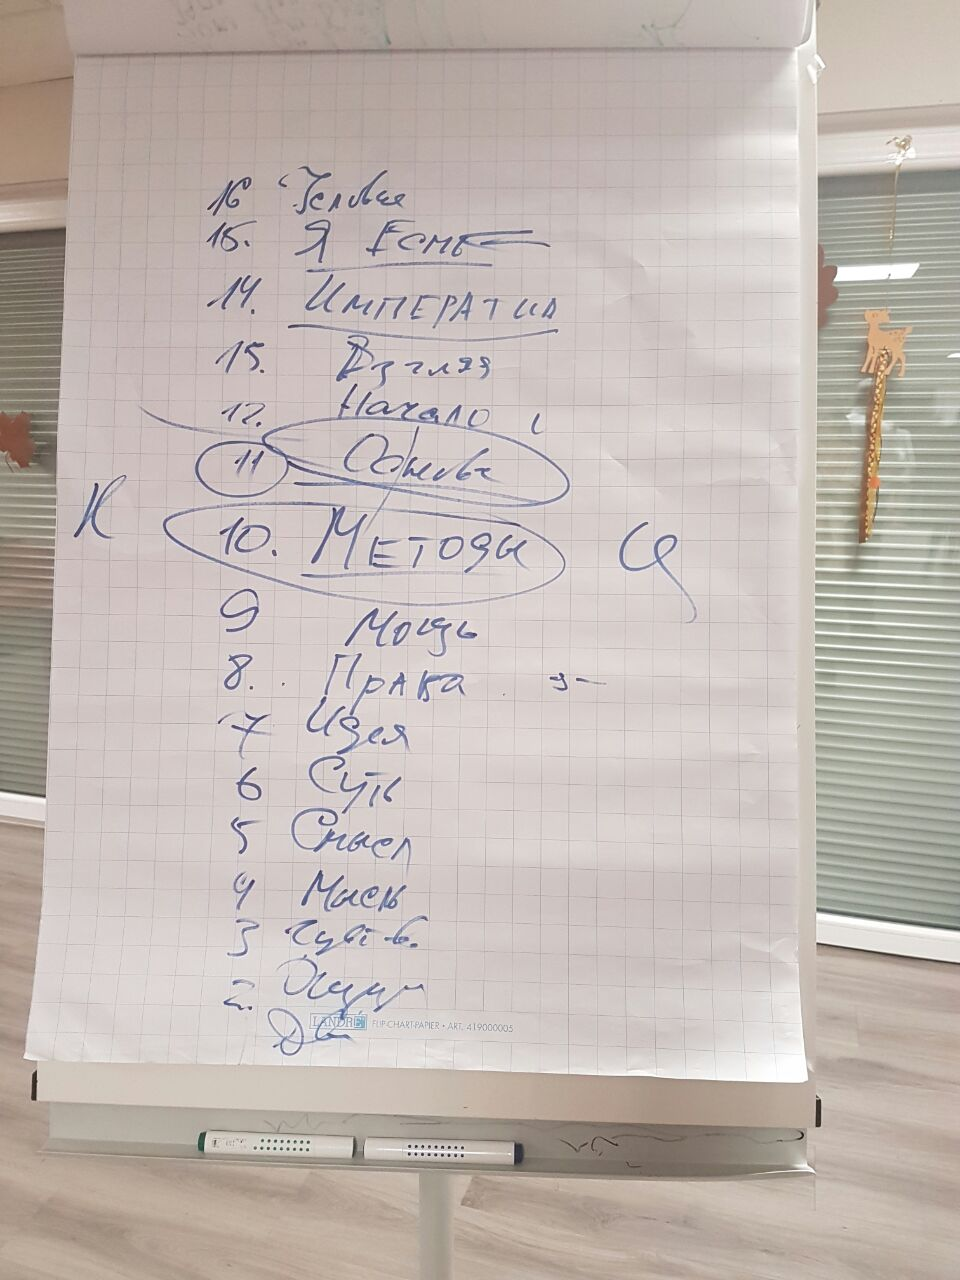 16 Человек
15. Я Есмь
14. ИМПЕРАТИВ
13. Взгляд
12. Начало
11 Основа
К 10. МЕТОДЫ
9 Мощь
8. Права
7 Идея
6 Суть
5 Смысл
4 Мысль
3 Чувств.
2. Ощущ
Дв
LANDRÉ FLIP-CHART-PAPIER • ART. 419000005